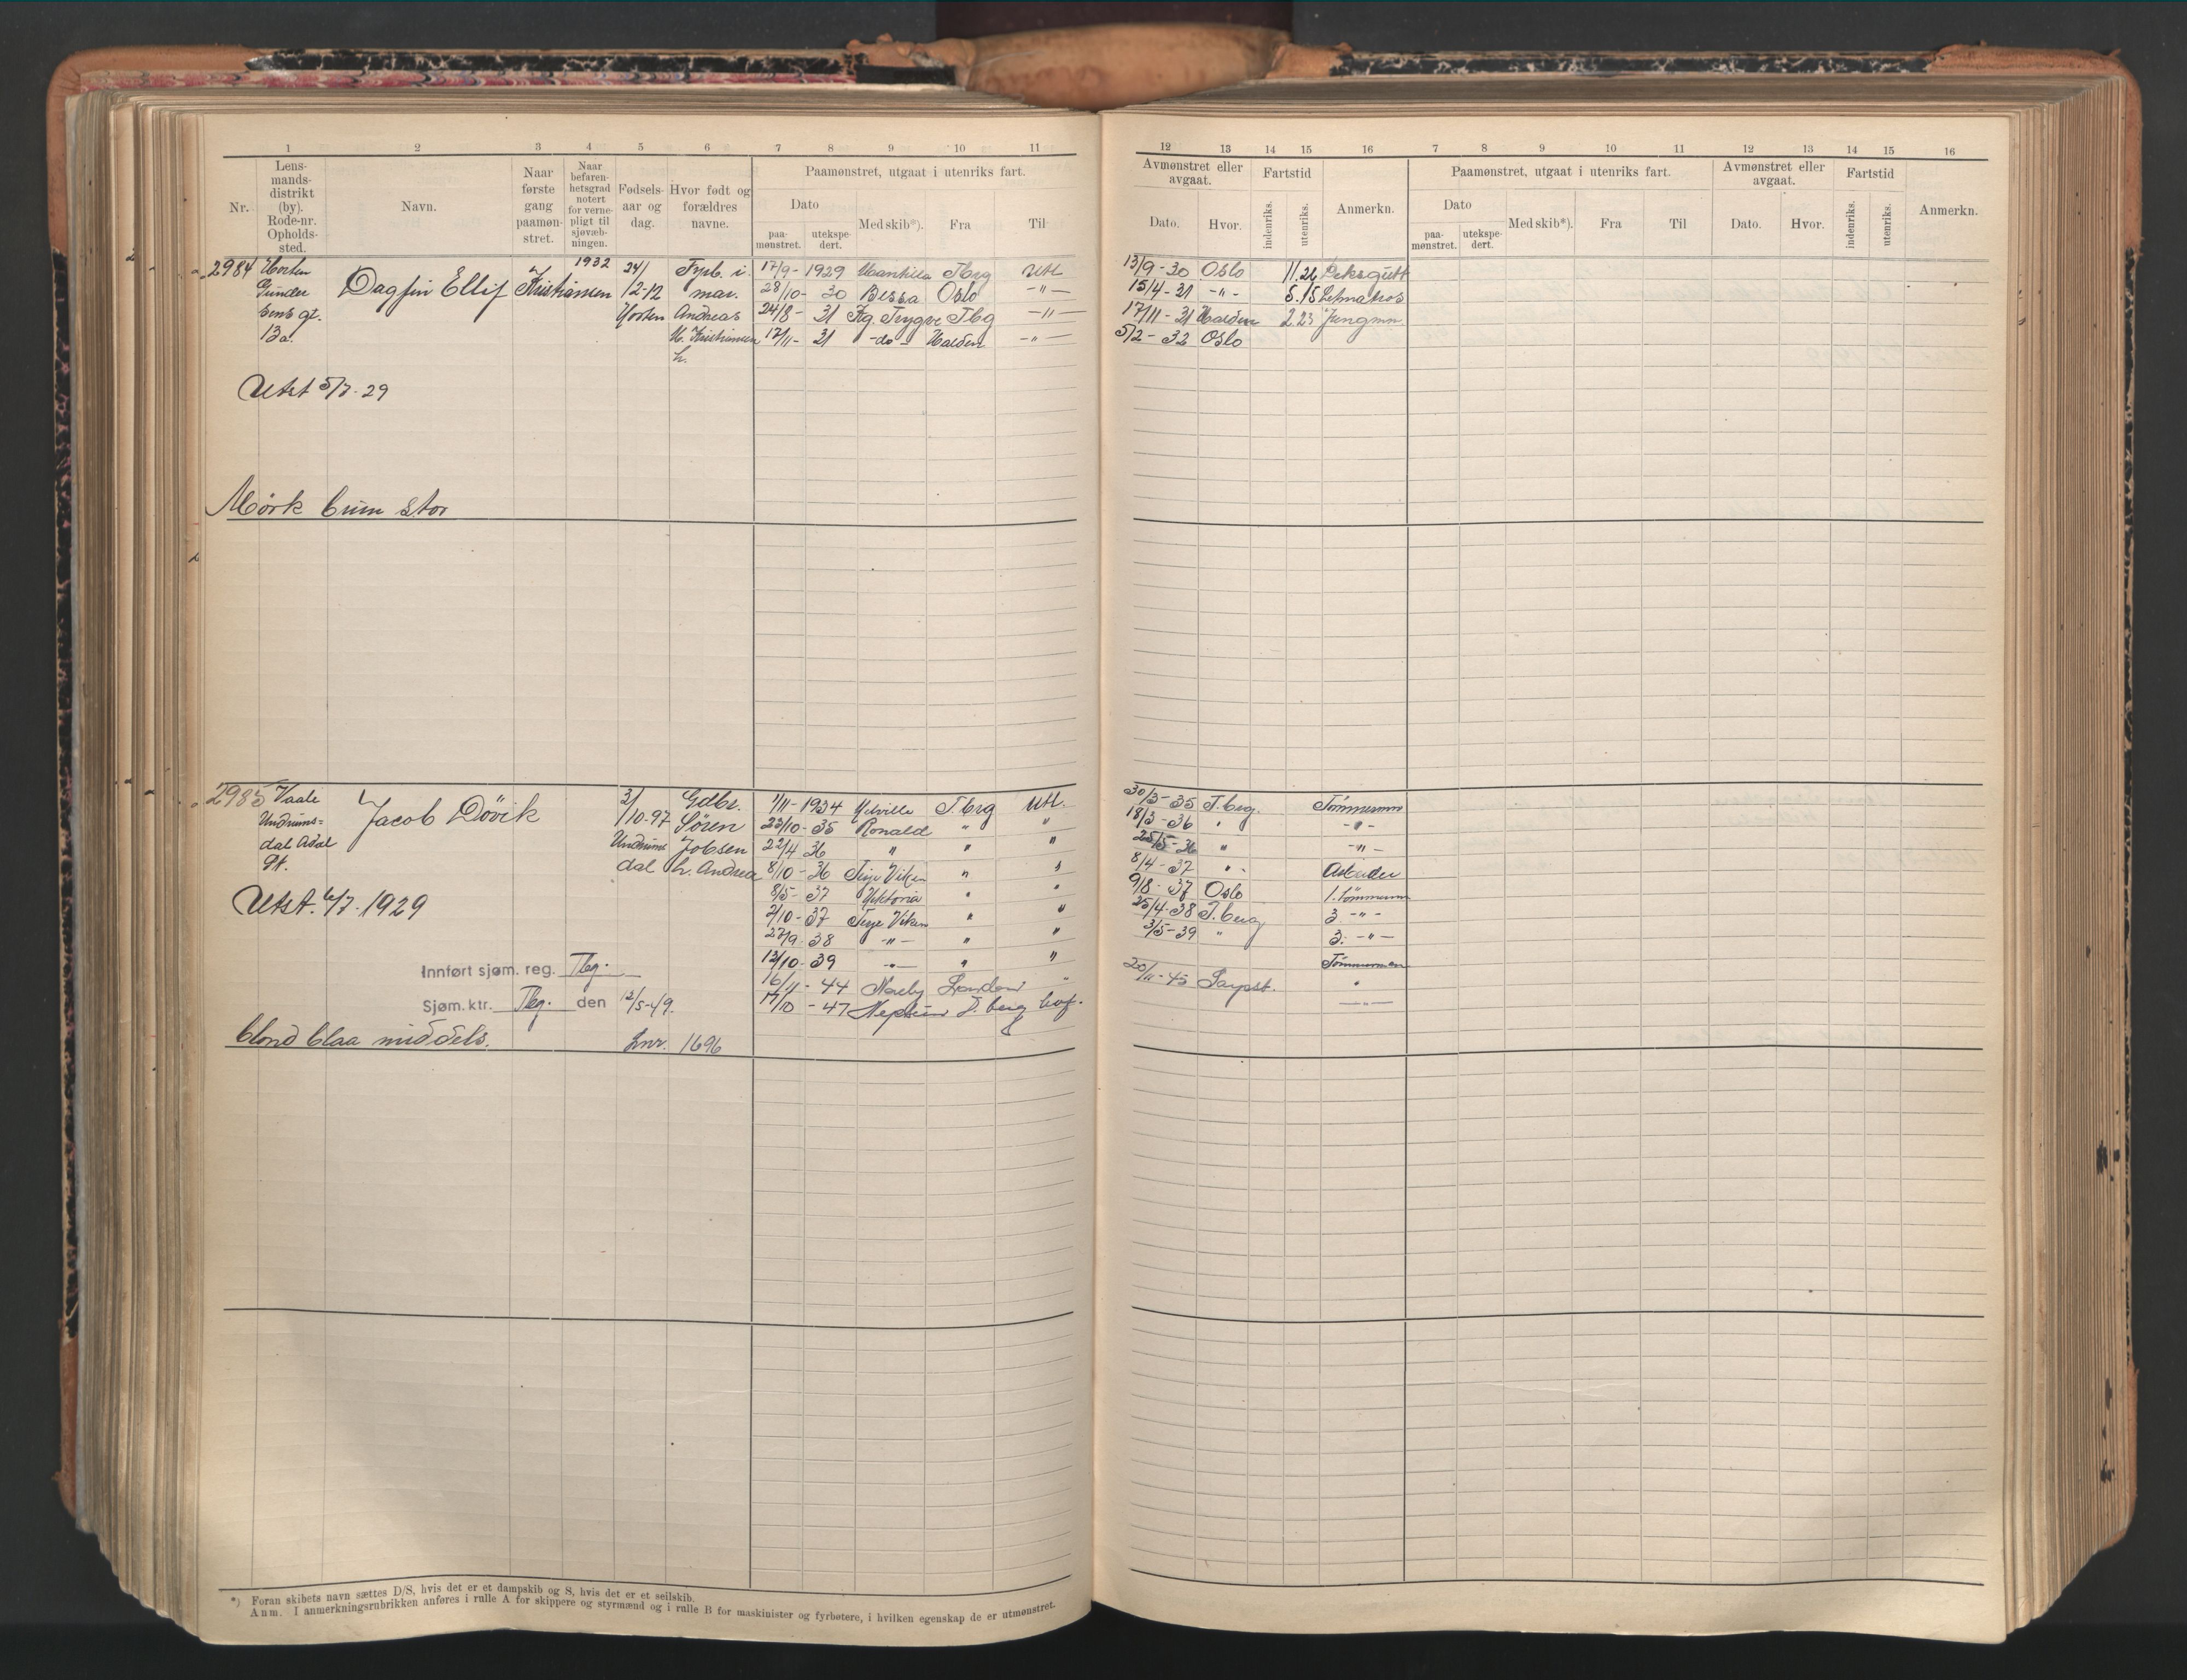 1 2 3 4 5 6 7 8 9 10 11
Nr. Lens-mands-distrikt (by). Rode-nr. Opholds-sted. Navn. Naar første gang paamøn-stret. Naar befaren-hetsgrad notert for verne-pligt til sjøvæb-ningen. Fødsels-aar og dag. Hvor født og forældres navne. Paamønstret, utgaat i utenriks fart.
Dato
paa-mønstret. utekspe-dert. Med skib*). Fra Til
12 13 14 15 16 7 8 9 10 11 12 13 14 15 16
Avmønstret eller avgaat. Fartstid Anmerkn. Paamønstret, utgaat i utenriks fart. Avmønstret eller avgaat. Fartstid Anmerkn.
Dato. Hvor. indenriks. utenriks. Dato paa-mønstret. utekspe-dert. Med skib*). Fra Til Dato. Hvor. indenriks. utenriks.
2984 Horten Dagfin Ellif Kristiansen 1932 24/ Fyrb. i 17/9- 1929 Tbrg Utl 13/9-30 Oslo 11.26 Deksgutt
Gunder 12-12 mar. 28/10- 30 Bessa Oslo -"- 15/4-31 -"- 5.15 Letmatros
sens gt. Horten Andreas 24/8- 31 Kg. Trygve Tbg -"- 17/11-31 Halden 2.23 Jungmn.
13a. M. Kristiansen 17/11- 31 -do- Halden -"- 5/2-32 Oslo
h.
Utst 5/7-29
Mørk brun stor
2985 Vaale Jacob Dövik 3/ Gdbr. 1/11-1934 Tbrg Utl. 30/3-35 T.brg. Tömmermn
Undrums= /10-97 Sören 23/10-35 Ronald " " 18/3-36 " -"-
dal Adal Undrums Jobsen 22/4 36 " " " 25/5-36 " -"-
Pt. dal h. Andrea 8/10-36 Terje Viken " " 8/4-37 " Arbeider
8/5-37 Viktoria " " 9/8-37 Oslo 1. tömmermn
Utst. 6/7-1929 2/10-37 Terje Viken " " 25/4-38 T.berg 3 -"-
27/9-38 -"- " " 3/5-39 " 3. -"-
Innført sjøm. reg. Tbg. 12/10-39 -"- " " Tömmerman
16/11-44 London " 20/11-45 Sarpsb. "
Sjøm. ktr. Tbg. den 12/5-49. 17/10-47 Neptun T.berg hvf. -"-
blond blaa middels. Lnr. 1696
*) Foran skibets navn sættes D/S, hvis det er et dampskib og S, hvis det er et seilskib.
Anm. I anmerkningsrubrikken anføres i rulle A for skippere og styrmænd og i rulle B for maskinister og fyrbøtere, i hvilken egenskap de er utmønstret.